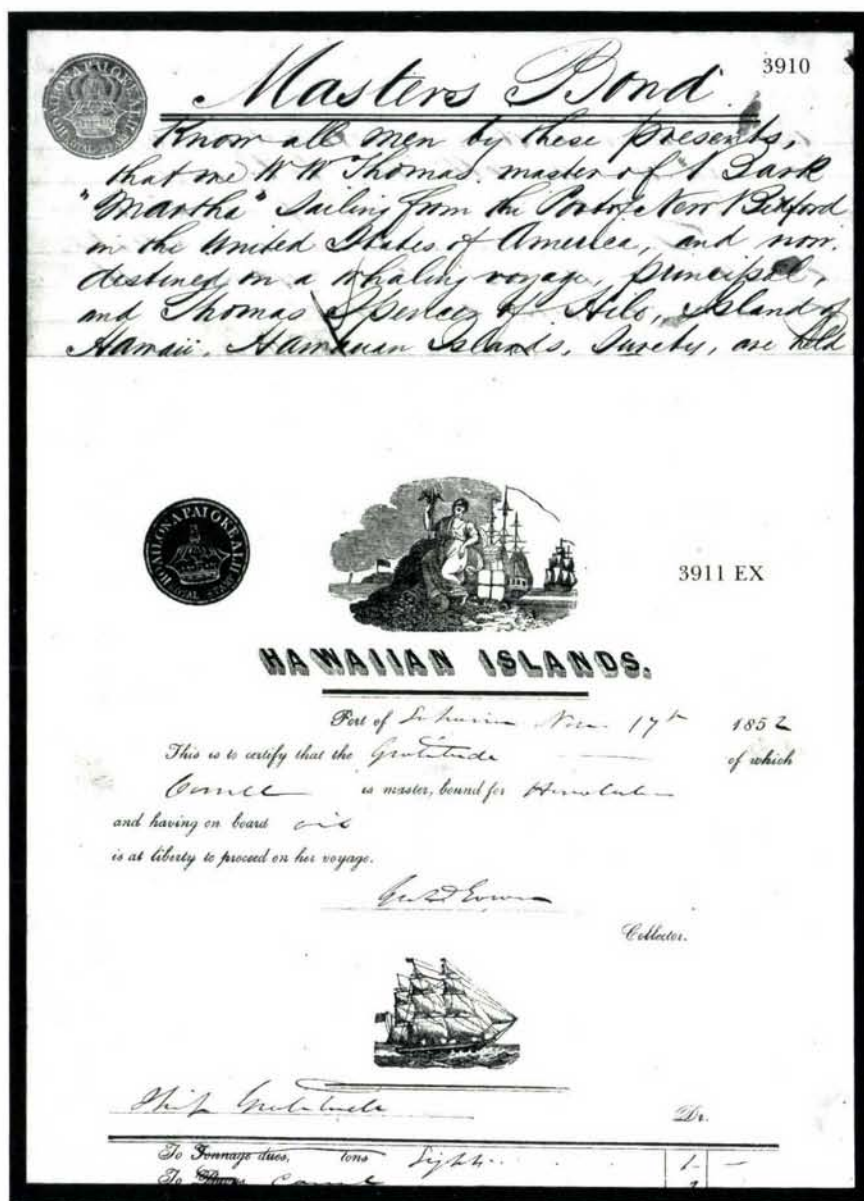 3910
Masters Bond
Know all men by these presents,
that we W W Thomas, master of Bark
"Martha" Sailing from the Port of New Bedford
in the United States of America, and now
destined on a whaling voyage, principal,
and Thomas Spencer of Hilo, Island of
Hawaii, Hawaiian Islands, Surety, are held
3911 EX
HAWAIIAN ISLANDS.
Port of Lahaina Nov 17th 1852
This is to certify that the Gratitude of which
is master, bound for Honolulu
and having on board oil
is at liberty to proceed on her voyage.
Collector.
Ship Gratitude Dr.
To Tonnage dues, tons Lights
To